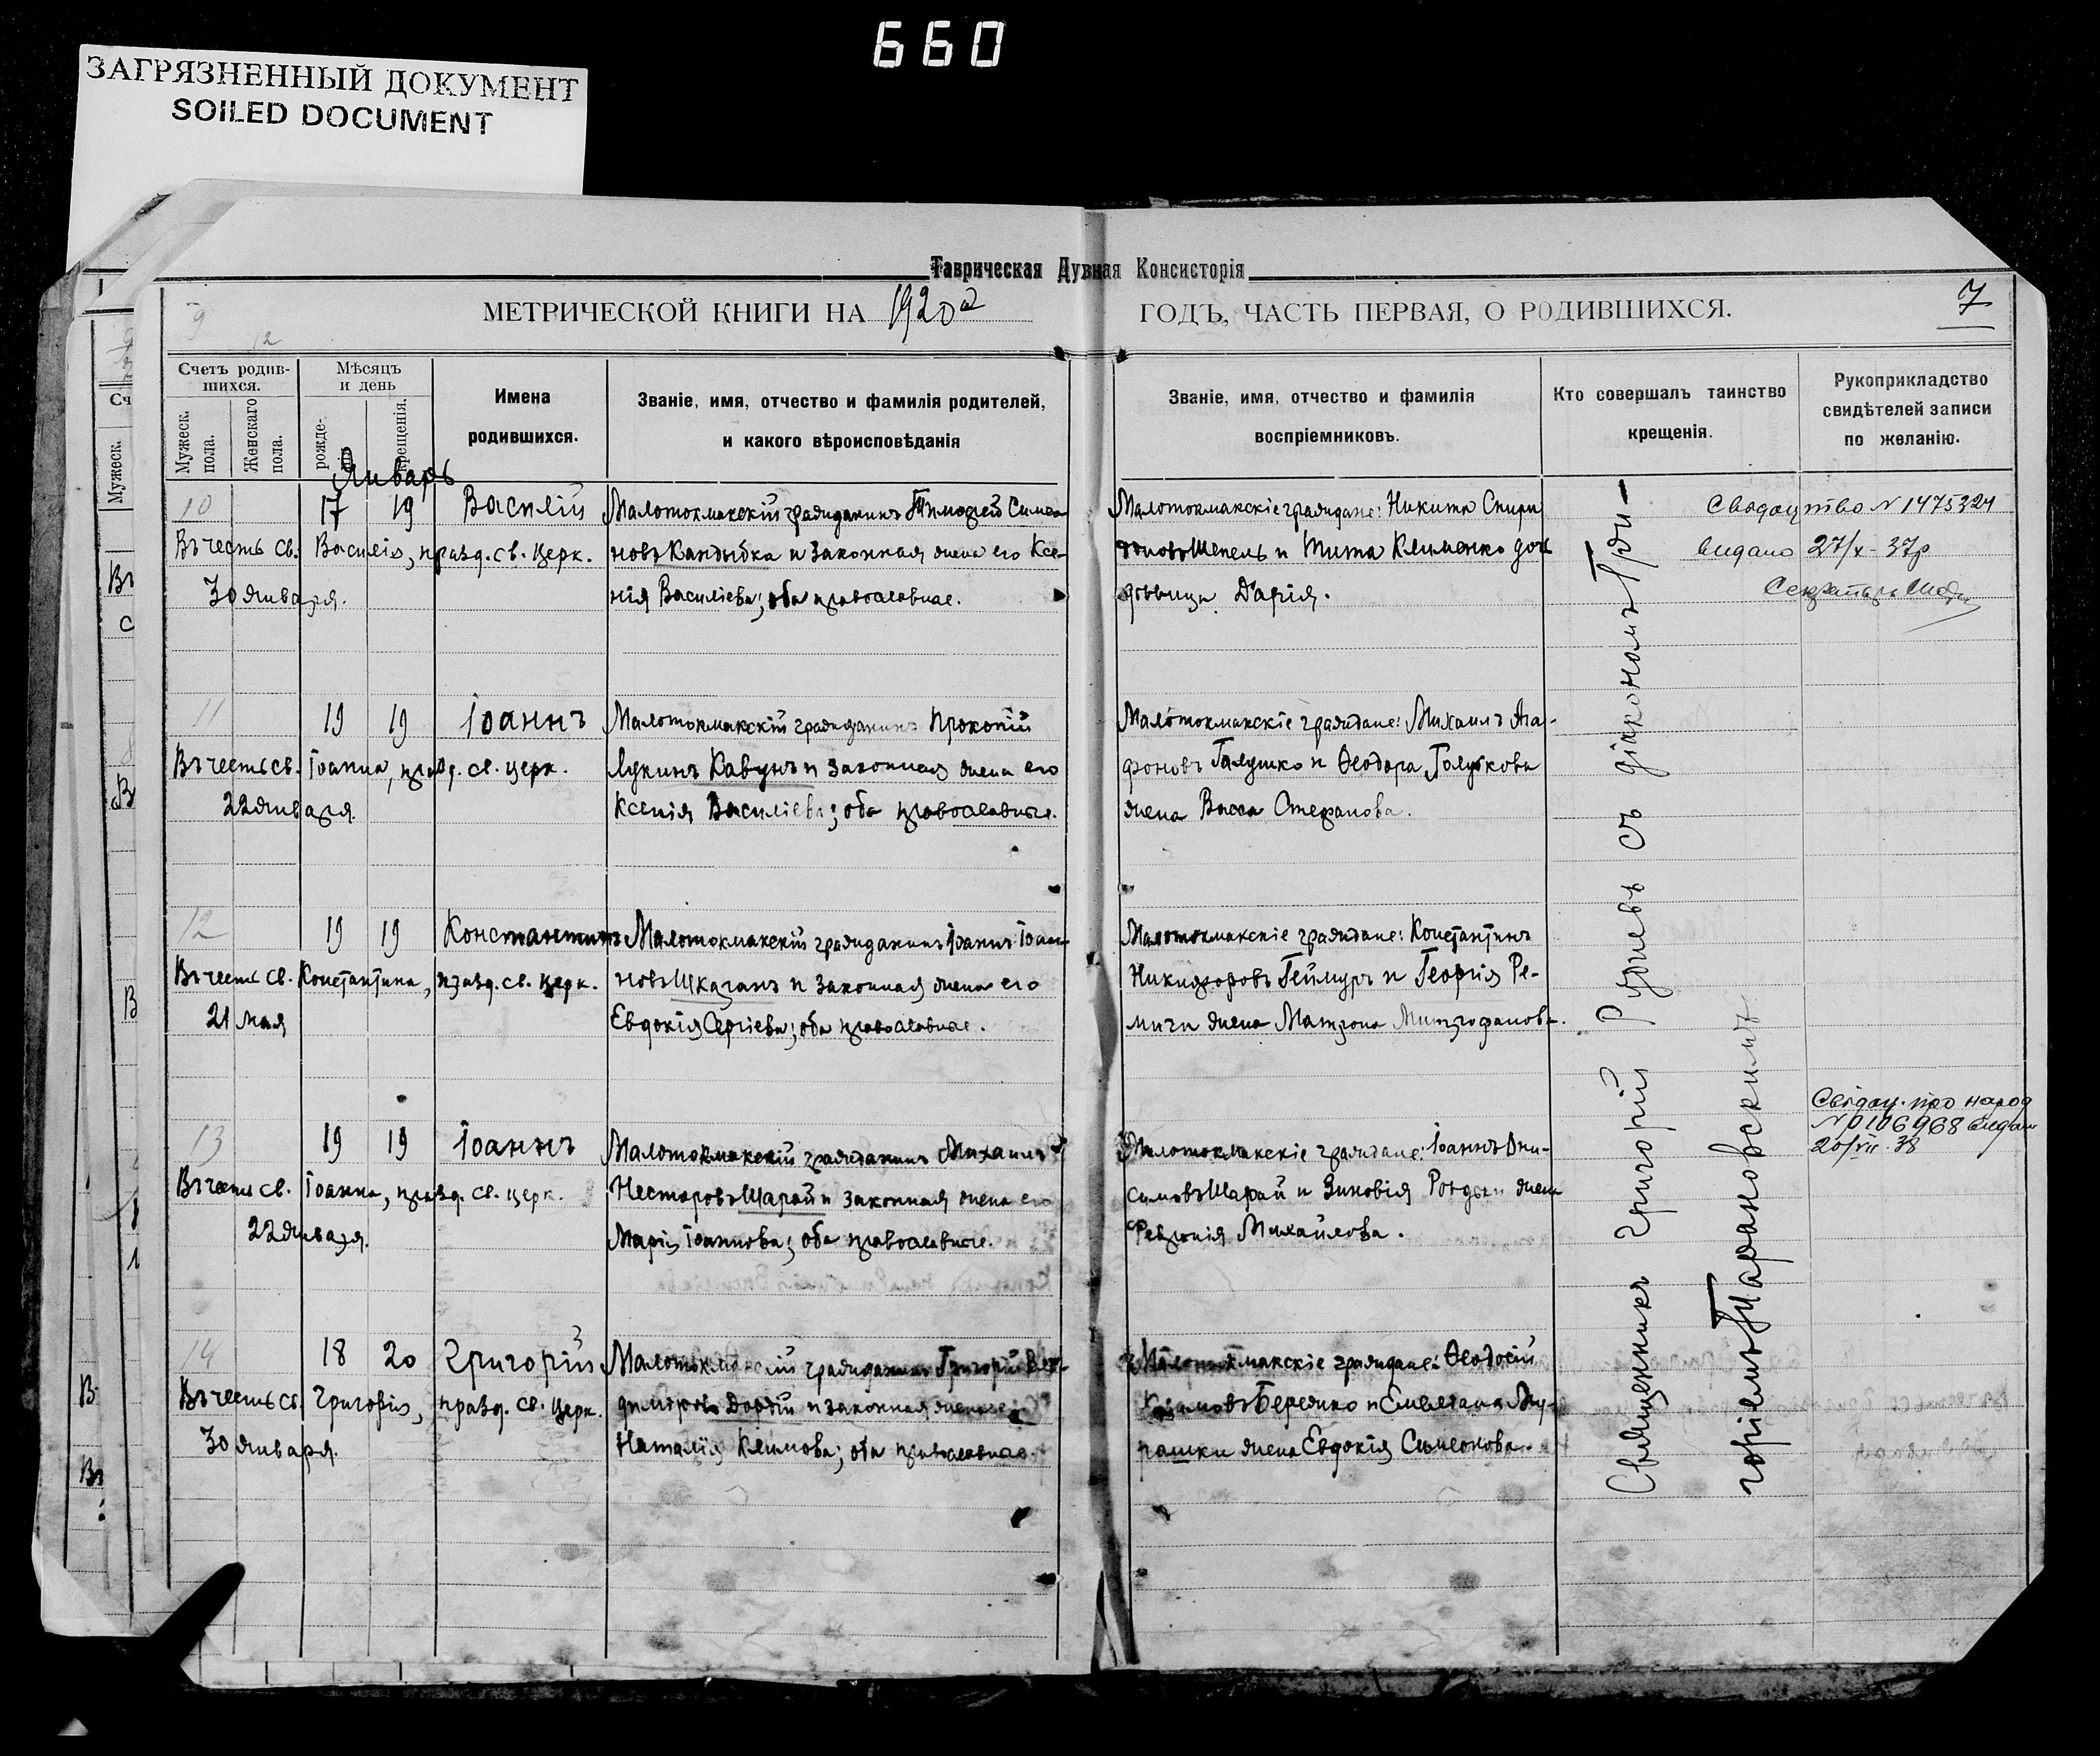 660
ЗАГРЯЗНЕННЫЙ ДОКУМЕНТ
SOILED DOCUMENT
Таврическая Духвная Консисторія
МЕТРИЧЕСКОЙ КНИГИ НА 1920 ГОДЪ, ЧАСТЬ ПЕРВАЯ, О РОДИВШИХСЯ.
7
Счетъ родив-
шихся.
Мужеск. пола.
Женскаго пола.
Мѣсяцъ
и день
рожде-
крещенія.
Имена
родившихся.
Званіе, имя, отчество и фамилія родителей,
и какого вѣроисповѣданія
Званіе, имя, отчество и фамилія
воспріемниковъ.
Кто совершалъ таинство
крещенія.
Рукоприкладство
свидѣтелей записи
по желанію.
Январь
10 17 19 Василій
Въ честь св. Василія, празд. св. церк.
30 января.
Малотокмакскій гражданинъ Тимофей Симео-
новъ Кандыбка и законная жена его Ксе-
нія Василіева; оба православные.
Малотокмакскіе граждане: Никита Спири
доновъ Шепель и Тита Клименко дочь
дѣвица Дарія.
Свідоцтво № 1475324
видано 27/X - 37р
Секретарь
11 19 19 Іоаннъ
Въ честь св. Іоанна, празд. св. церк.
22 января.
Малотокмакскій гражданинъ Прокопій
Лукинъ Кавунъ и законная жена его
Ксенія Василіева; оба православные.
Малотокмакскіе граждане: Михаилъ Ага-
фоновъ Галушко и Ѳеодора Голубкова
жена Васса Стефанова.
12 19 19 Константинъ
Въ честь св. Константина, празд. св. церк.
21 мая
Малотокмакскій гражданинъ Іоаннъ Іоан-
новъ Шказанъ и законная жена его
Евдокія Сергіева; оба православные.
Малотокмакскіе граждане: Константинъ
Никифоровъ Геймуръ и Георгія Ре-
мичи жена Матрона Митрофанова.
13 19 19 Іоаннъ
Въ честь св. Іоанна, празд. св. церк.
22 января.
Малотокмакскій гражданинъ Михаилъ
Несторовъ Шарай и законная жена его
Марія Іоаннова; оба православные.
Малотокмакскіе граждане: Іоаннъ Они-
симовъ Шарай и Зиновія жена
Февронія Михайлова.
Свідоц. про народ
№ 0106968 видан
20/VII 38
14 18 20 Григорій
Въ честь св. Григорія, празд. св. церк.
30 января.
Малотокмакскій гражданинъ Григорій Вла-
диміровъ и законная жена его
Наталія Климова; оба православные.
Малотокмакскіе граждане: Ѳеодосій
Бережко и Емеліана Му-
рашки жена Евдокія Симеонова.
Священникъ Григорій Рудневъ съ діакономъ Гри-
горіемъ Тарановскимъ